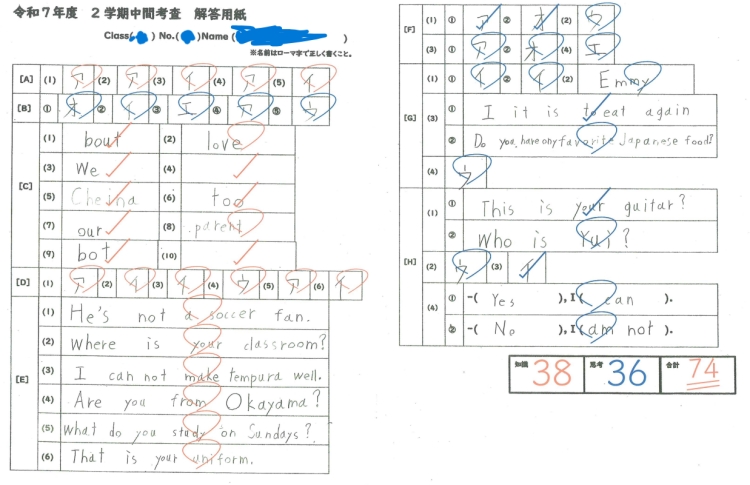 令和7年度 2学期中間考査 解答用紙
Class( ) No.( )Name ( )
※名前はローマ字で正しく書くこと。
[A] (1) ア (2) ア (3) イ (4) ア (5) イ
[B] ① オ ② イ ③ エ ④ ア ⑤ ウ
[C] (1) bout (2) love
(3) We (4)
(5) Cheina (6) too
(7) our (8) parent
(9) bot (10)
[D] (1) ア (2) イ (3) イ (4) ウ (5) ア (6) イ
[E] (1) He's not a soccer fan.
(2) Where is your classroom?
(3) I can not make tempura well.
(4) Are you from Okayama?
(5) What do you study on Sundays?
(6) That is your uniform.
[F] (1) ① ② オ (2) ウ
(3) ① ア ② オ (4) エ
[G] (1) ① イ ② イ (2) Emmy
(3) ① I it is to eat again
② Do you have any favorite Japanese food?
(4) ウ
[H] (1) ① This is your guitar?
② Who is Yui?
(2) ウ (3) イ
(4) ① -( Yes ), I ( can ).
② -( No ), I ( am not ).
知識 38 思考 36 合計 74